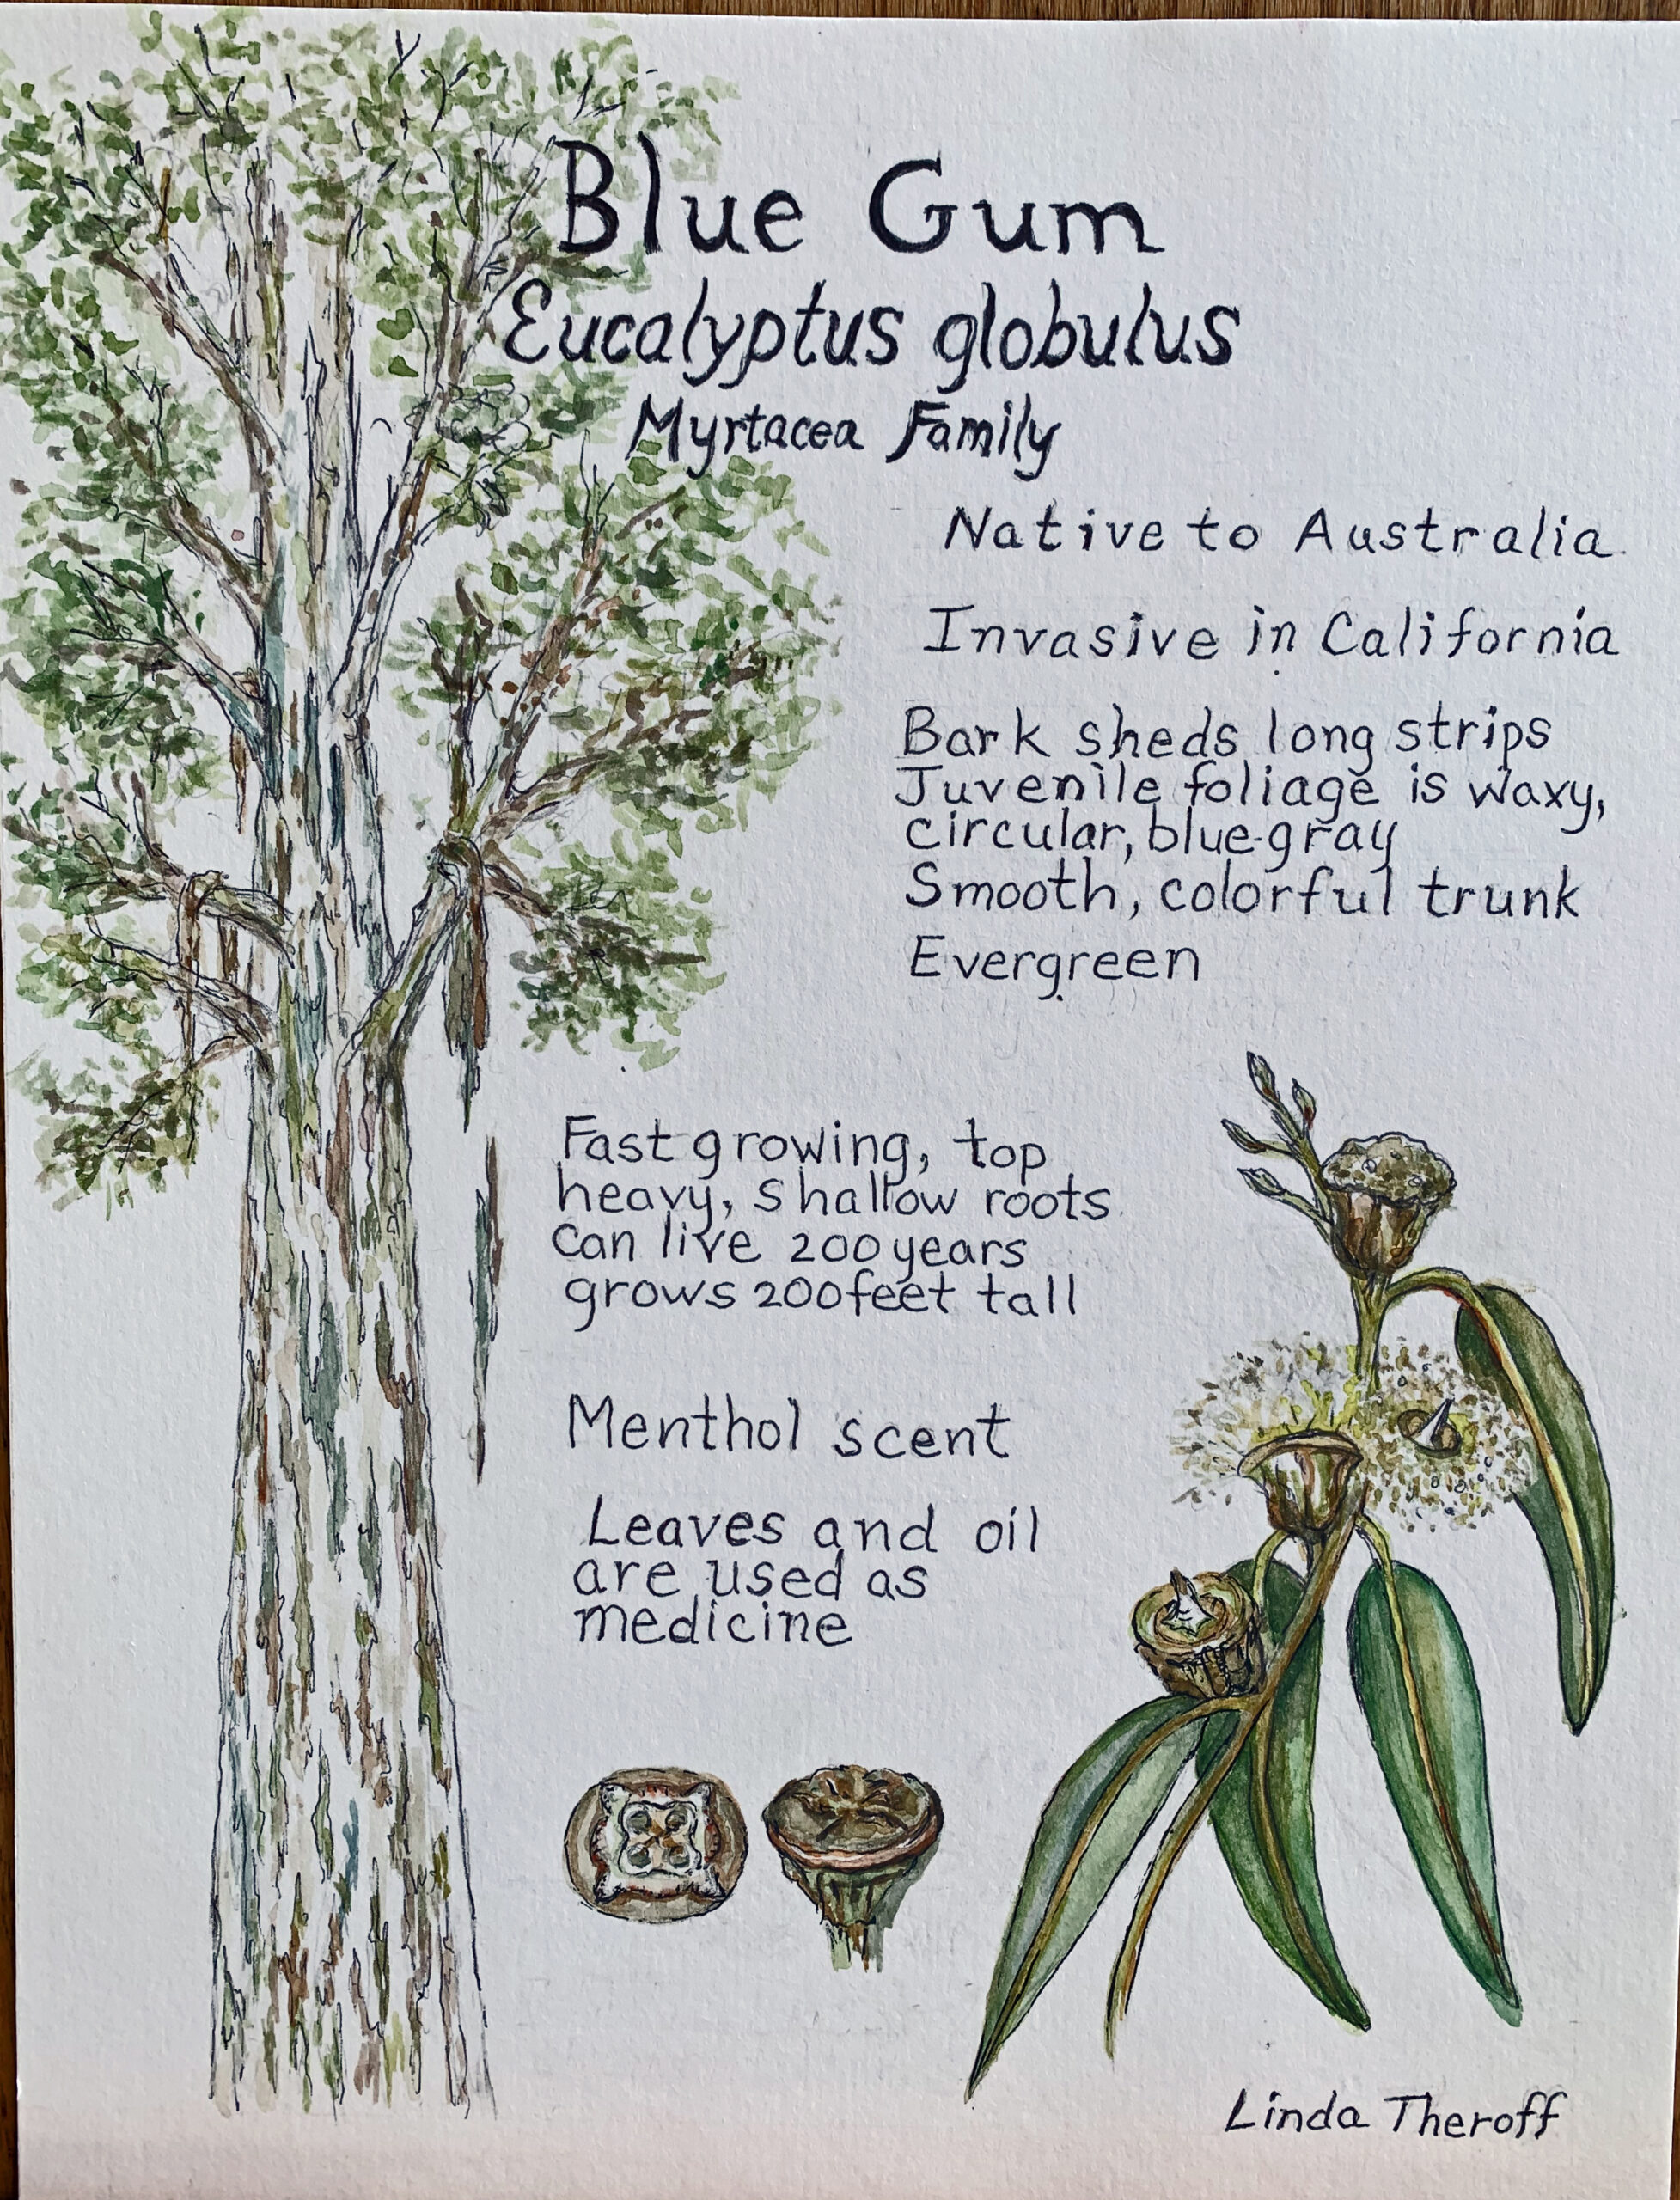 Blue Gum
Eucalyptus globulus
Myrtacea Family
Native to Australia
Invasive in California
Bark sheds long strips
Juvenile foliage is waxy,
circular, blue-gray
Smooth, colorful trunk
Evergreen
Fast growing, top
heavy, shallow roots
can live 200 years
grows 200 feet tall
Menthol scent
Leaves and oil
are used as
medicine
Linda Theroff